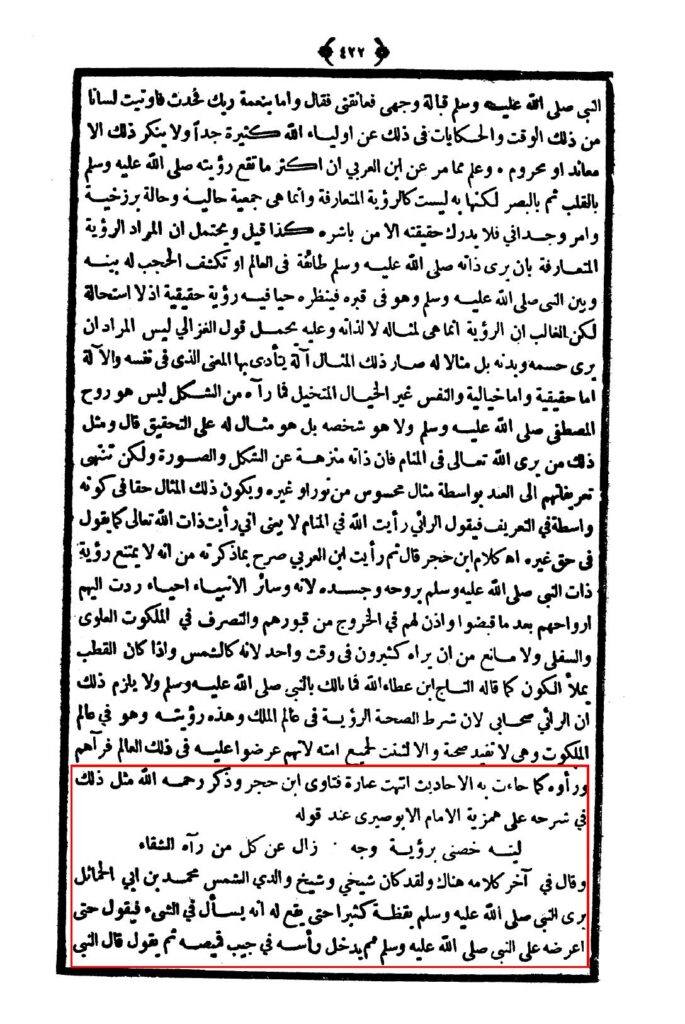 ﴿ ٤٢٢ ﴾
النبى صلى الله عليه وسلم قبالة وجهى فعانقنى فقال واما بنعمة ربك فحدث فاوتيت لسانا
من ذلك الوقت والحكايات فى ذلك عن اولياء الله كثيرة جداً ولا ينكر ذلك الا
معاند او محروم ٠ وعلم مما مر عن ابن العربي ان اكثر ما تقع رؤيته صلى الله عليه وسلم
بالقلب ثم بالبصر لكنها به ليست كالرؤية المتعارفة وانما هى جمعية حالية وحالة برزخية
وامر وجداني فلا يدرك حقيقته الا من باشره كذا قيل ويحتمل ان المراد الرؤية
المتعارفة بان يرى ذاته صلى الله عليه وسلم طائفة فى العالم او تكشف الحجب له بينه
وبين النبى صلى الله عليه وسلم وهو فى قبره فينظره حيا فيه رؤية حقيقية اذ لا استحالة
لكن الغالب ان الرؤية انما هى لمثاله لا لذاته وعليه يحمل قول الغزالي ليس المراد ان
يرى جسمه وبدنه بل مثالا له صار ذلك المثال آلة يتأدى بها المعنى الذى فى نفسه والآلة
اما حقيقية واما خيالية والنفس غير الخيال المتخيل فما رآه من الشكل ليس هو روح
المصطفى صلى الله عليه وسلم ولا هو شخصه بل هو مثال له على التحقيق قال ومثل
ذلك من يرى الله تعالى فى المنام فان ذاته منزهة عن الشكل والصورة ولكن تنتهى
تعريفاتهم الى العبد بواسطة مثال محسوس من نور او غيره ويكون ذلك المثال حقا فى كونه
واسطة في التعريف فيقول الرائي رأيت الله في المنام لا يعنى اني رأيت ذات الله تعالى كما يقول
فى حق غيره اه كلام ابن حجر قال ثم رأيت ابن العربي صرح بما ذكرته من انه لا يمتنع رؤية
ذات النبى صلى الله عليه وسلم بروحه وجسده لانه وسائر الانبياء احياء ردت اليهم
ارواحهم بعد ما قبضوا واذن لهم في الخروج من قبورهم والتصرف في الملكوت العلوى
والسفلى ولا مانع من ان يراه كثيرون فى وقت واحد لانه كالشمس واذا كان القطب
يملأ الكون كما قاله التاج ابن عطاء الله فما بالك بالنبى صلى الله عليه وسلم ولا يلزم ذلك
ان الرائي صحابي لان شرط الصحة الرؤية فى عالم الملك وهذه رؤيته وهو فى عالم
الملكوت وهى لا تفيد صحبة والا لثبتت لجميع امته لانهم عرضوا عليه فى ذلك العالم فرآهم
ورأوه كما جاءت به الاحاديث انتهت عبارة فتاوى ابن حجر وذكر رحمه الله مثل ذلك
في شرحه على همزية الامام الابوصيرى عند قوله
ليته خصنى برؤية وجه ٠ زال عن كل من رآه الشقاء
وقال في آخر كلامه هناك ولقد كان شيخي وشيخ والدي الشمس محمد بن ابي الحمائل
يرى النبى صلى الله عليه وسلم يقظة كثيرا حتى يقع له انه يسأل في الشيء فيقول حتى
اعرضه على النبي صلى الله عليه وسلم ثم يدخل رأسه في جيب قميصه ثم يقول قال النبى